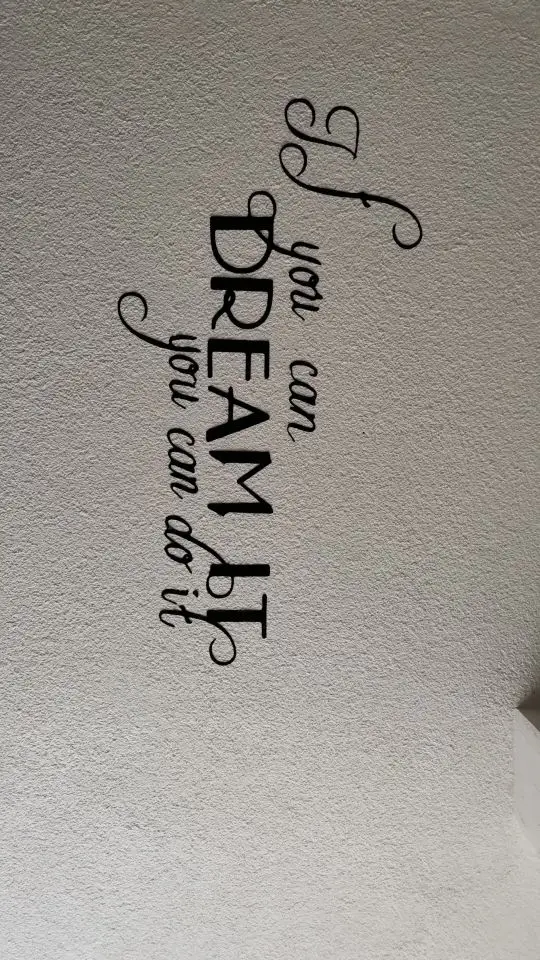 If
you can
DREAM IT
you can do it